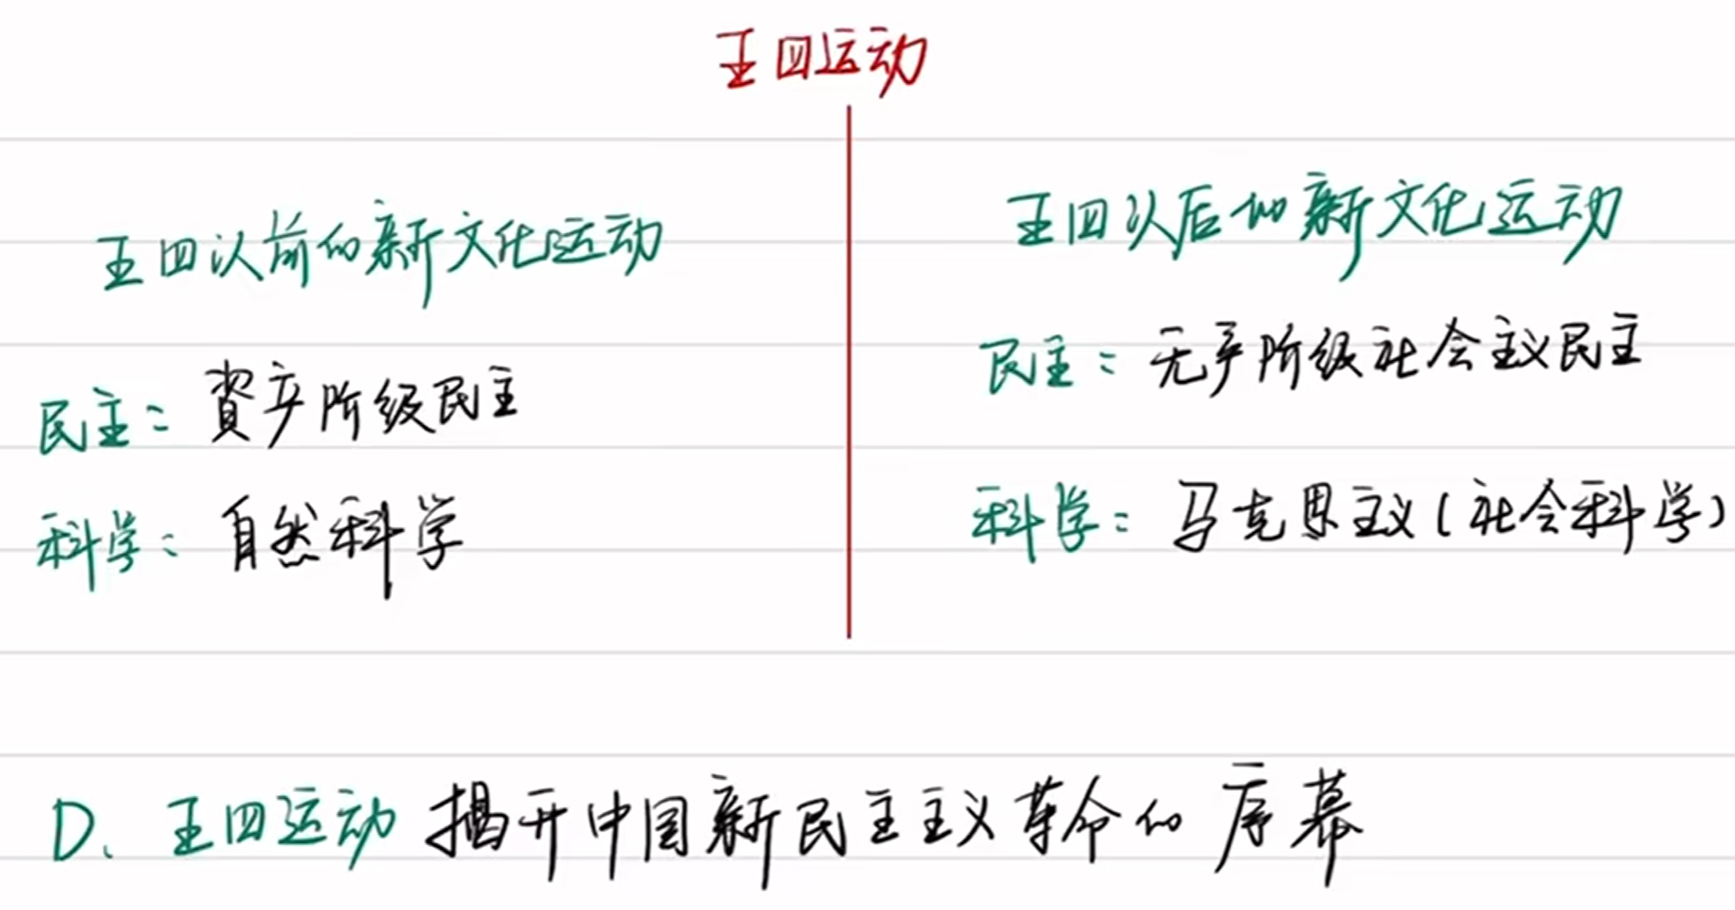 五四运动
五四以前的新文化运动
民主：资产阶级民主
科学：自然科学
五四以后的新文化运动
民主：无产阶级社会主义民主
科学：马克思主义（社会科学）
D、五四运动 揭开中国新民主主义革命的序幕